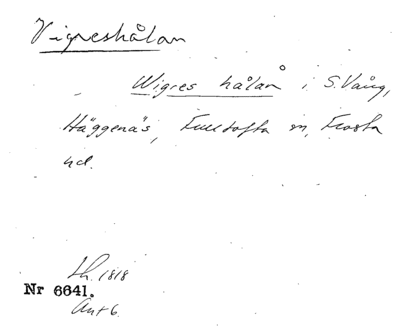 Vigreshålan
Wigres hålan i S. Vång,
Häggenäs, Fulltofta sn, Frosta
hd.
Lh. 1818
Nr 6641.
Ant 6.